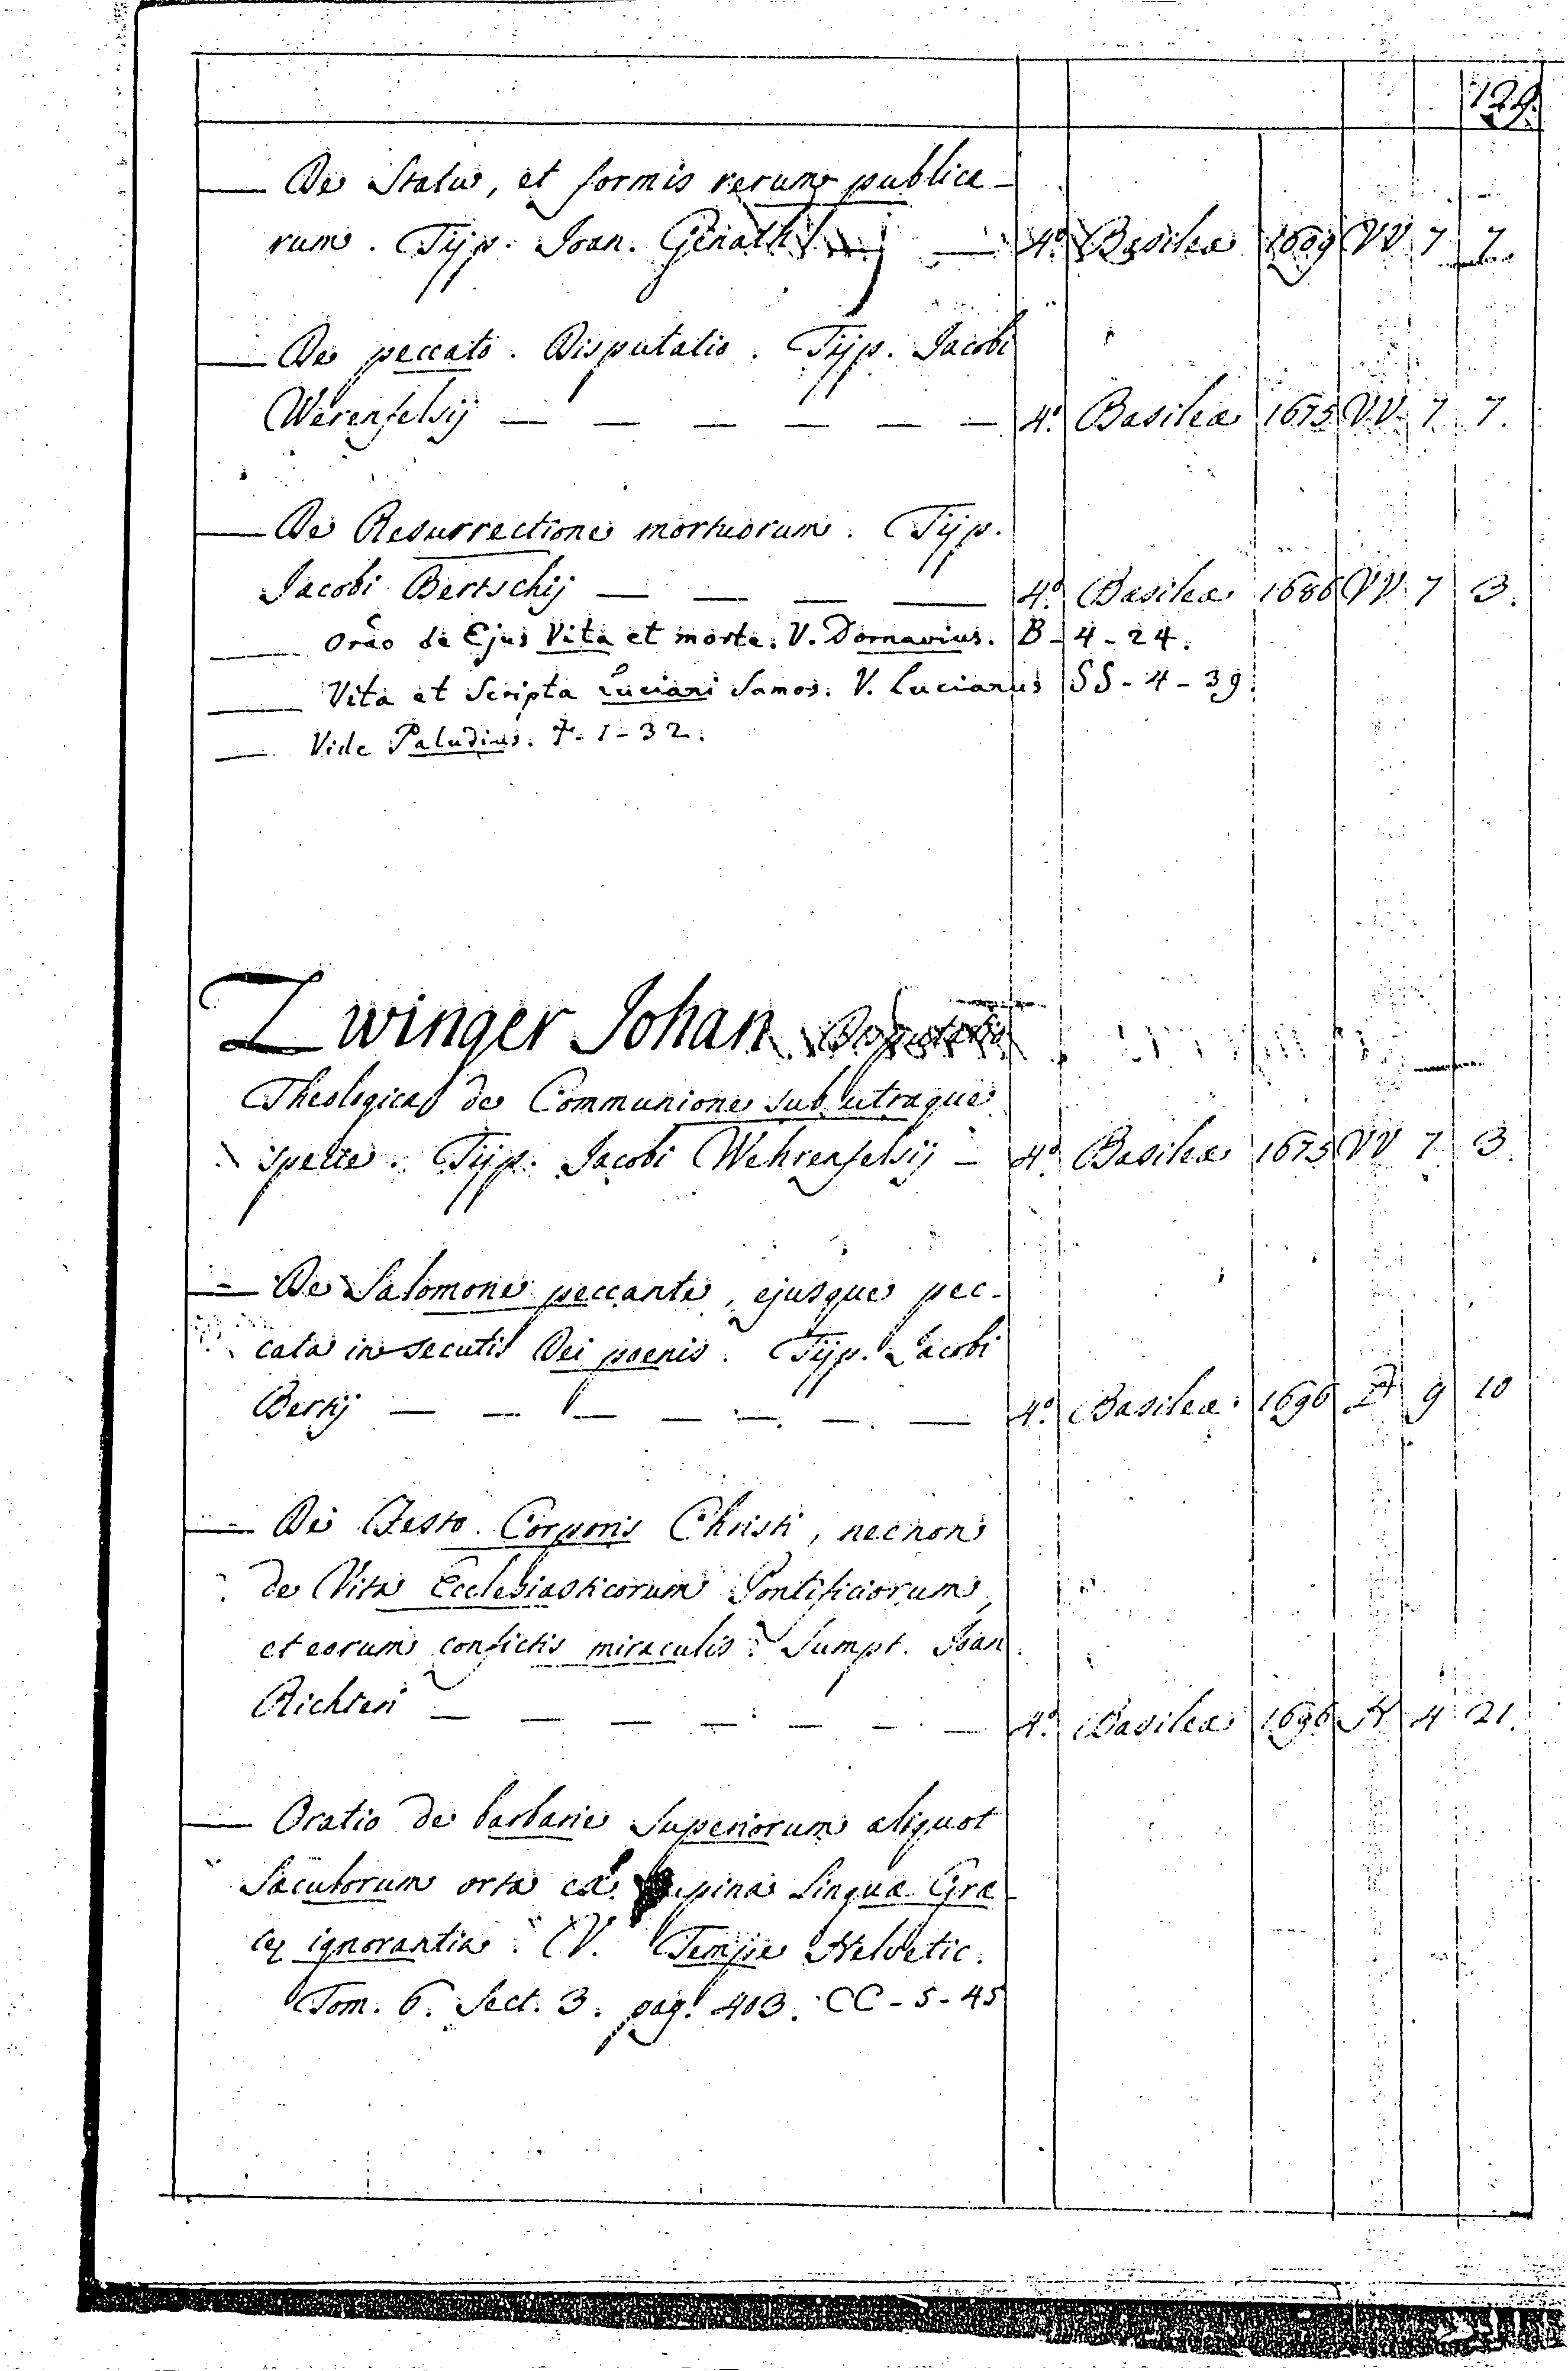 129.
— De Statu, et formis rerum publica-
rum. Typ. Joan. Genathij — 4º. Basileæ 1609 VV 7 7
— De peccato. Disputatio. Typ. Jacobi
Werenfelsij — — — — — — 4º. Basileæ 1675 VV 7 7.
— De Resurrectione mortuorum. Typ.
Jacobi Bertschij — — — — 4º. Basileæ 1686 VV 7 3.
— Orão de Ejus Vita et morte. V. Dornavius. B - 4 - 24.
— Vita et Scripta Luciani Samos. V. Lucianus SS - 4 - 39.
— Vide Paludius. 7 - 1 - 32.
Zwinger Johan Disputatio
Theologica de Communione sub utraque
specie. Typ. Jacobi Wehrenfelsij — 4º. Basileæ 1675 VV 7 3.
— De Salomone peccante, ejusque pec-
cata insecutis Dei poenis. Typ. Jacobi
Bertij — — — — — — — 4º. Basileæ 1696 9 10
— De Festo Corporis Christi, necnon
de Vita Ecclesiasticorum Pontificiorum,
et eorum confictis miraculis. Sumpt. Joan
Richteri — — — — — — — 4º. Basileæ 1696 4 21.
— Oratio de barbarie superiorum aliquot
Sæculorum orta ex supina Linguæ Græ
cæ ignorantia. V. Tempe Helvetic.
Tom. 6. Sect. 3. pag. 403. CC - 5 - 45